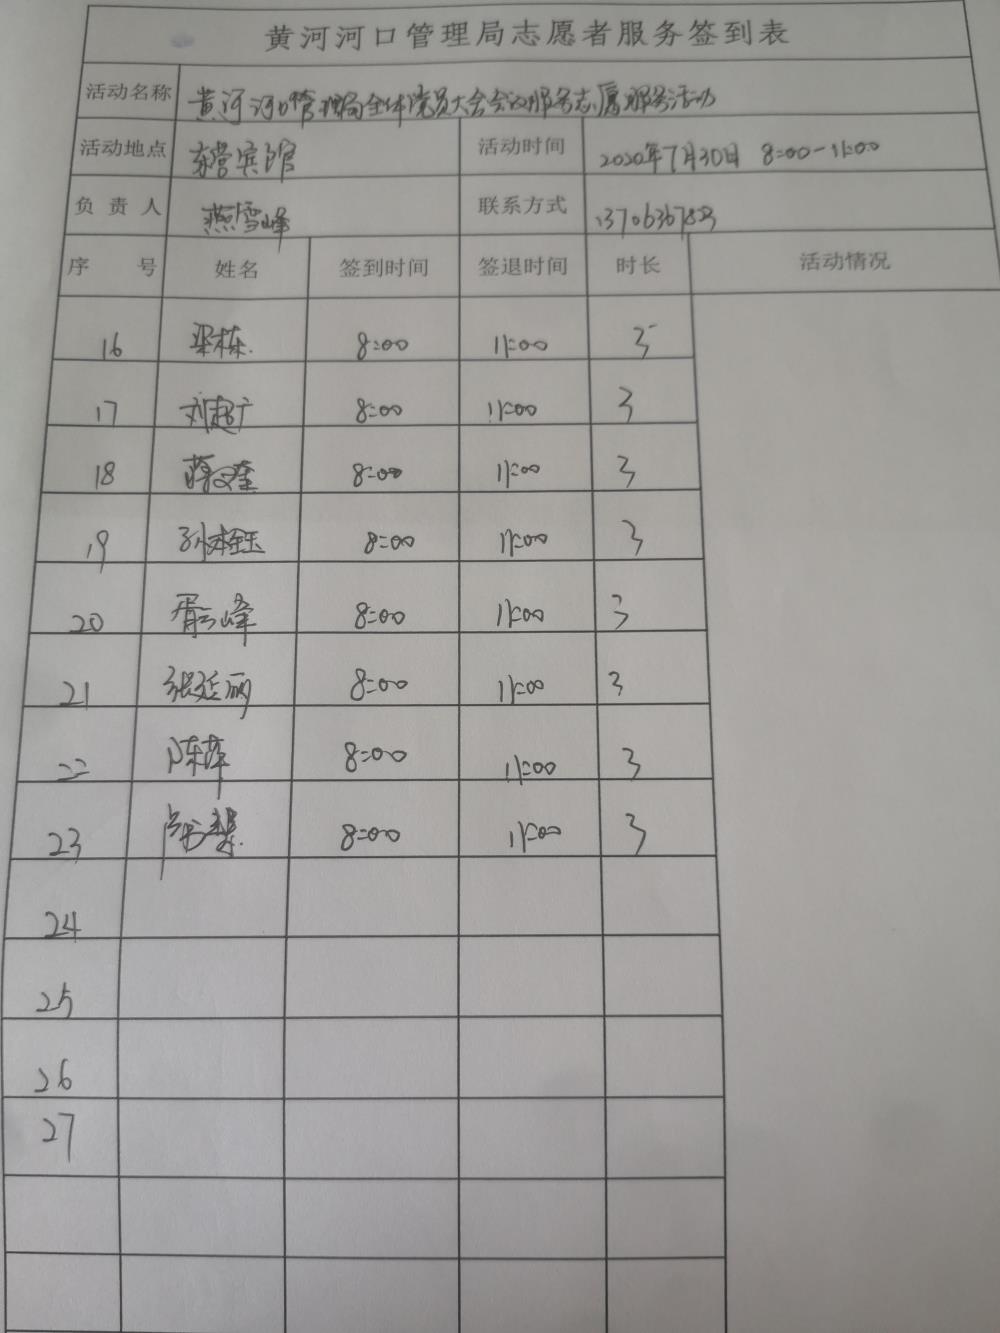 黄河河口管理局志愿者服务签到表
活动名称 黄河河口管理局全体党员大会会议服务志愿服务活动
活动地点 东营宾馆 活动时间 2020年7月30日 8:00-11:00
负责人 燕雪峰 联系方式
序号 姓名 签到时间 签退时间 时长 活动情况
16 梁栋 8:00 11:00 3
17 刘超广 8:00 11:00 3
18 蒋义奎 8:00 11:00 3
19 孙钰 8:00 11:00 3
20 胥云峰 8:00 11:00 3
21 张延丽 8:00 11:00 3
22 陈萍 8:00 11:00 3
23 8:00 11:00 3
24
25
26
27